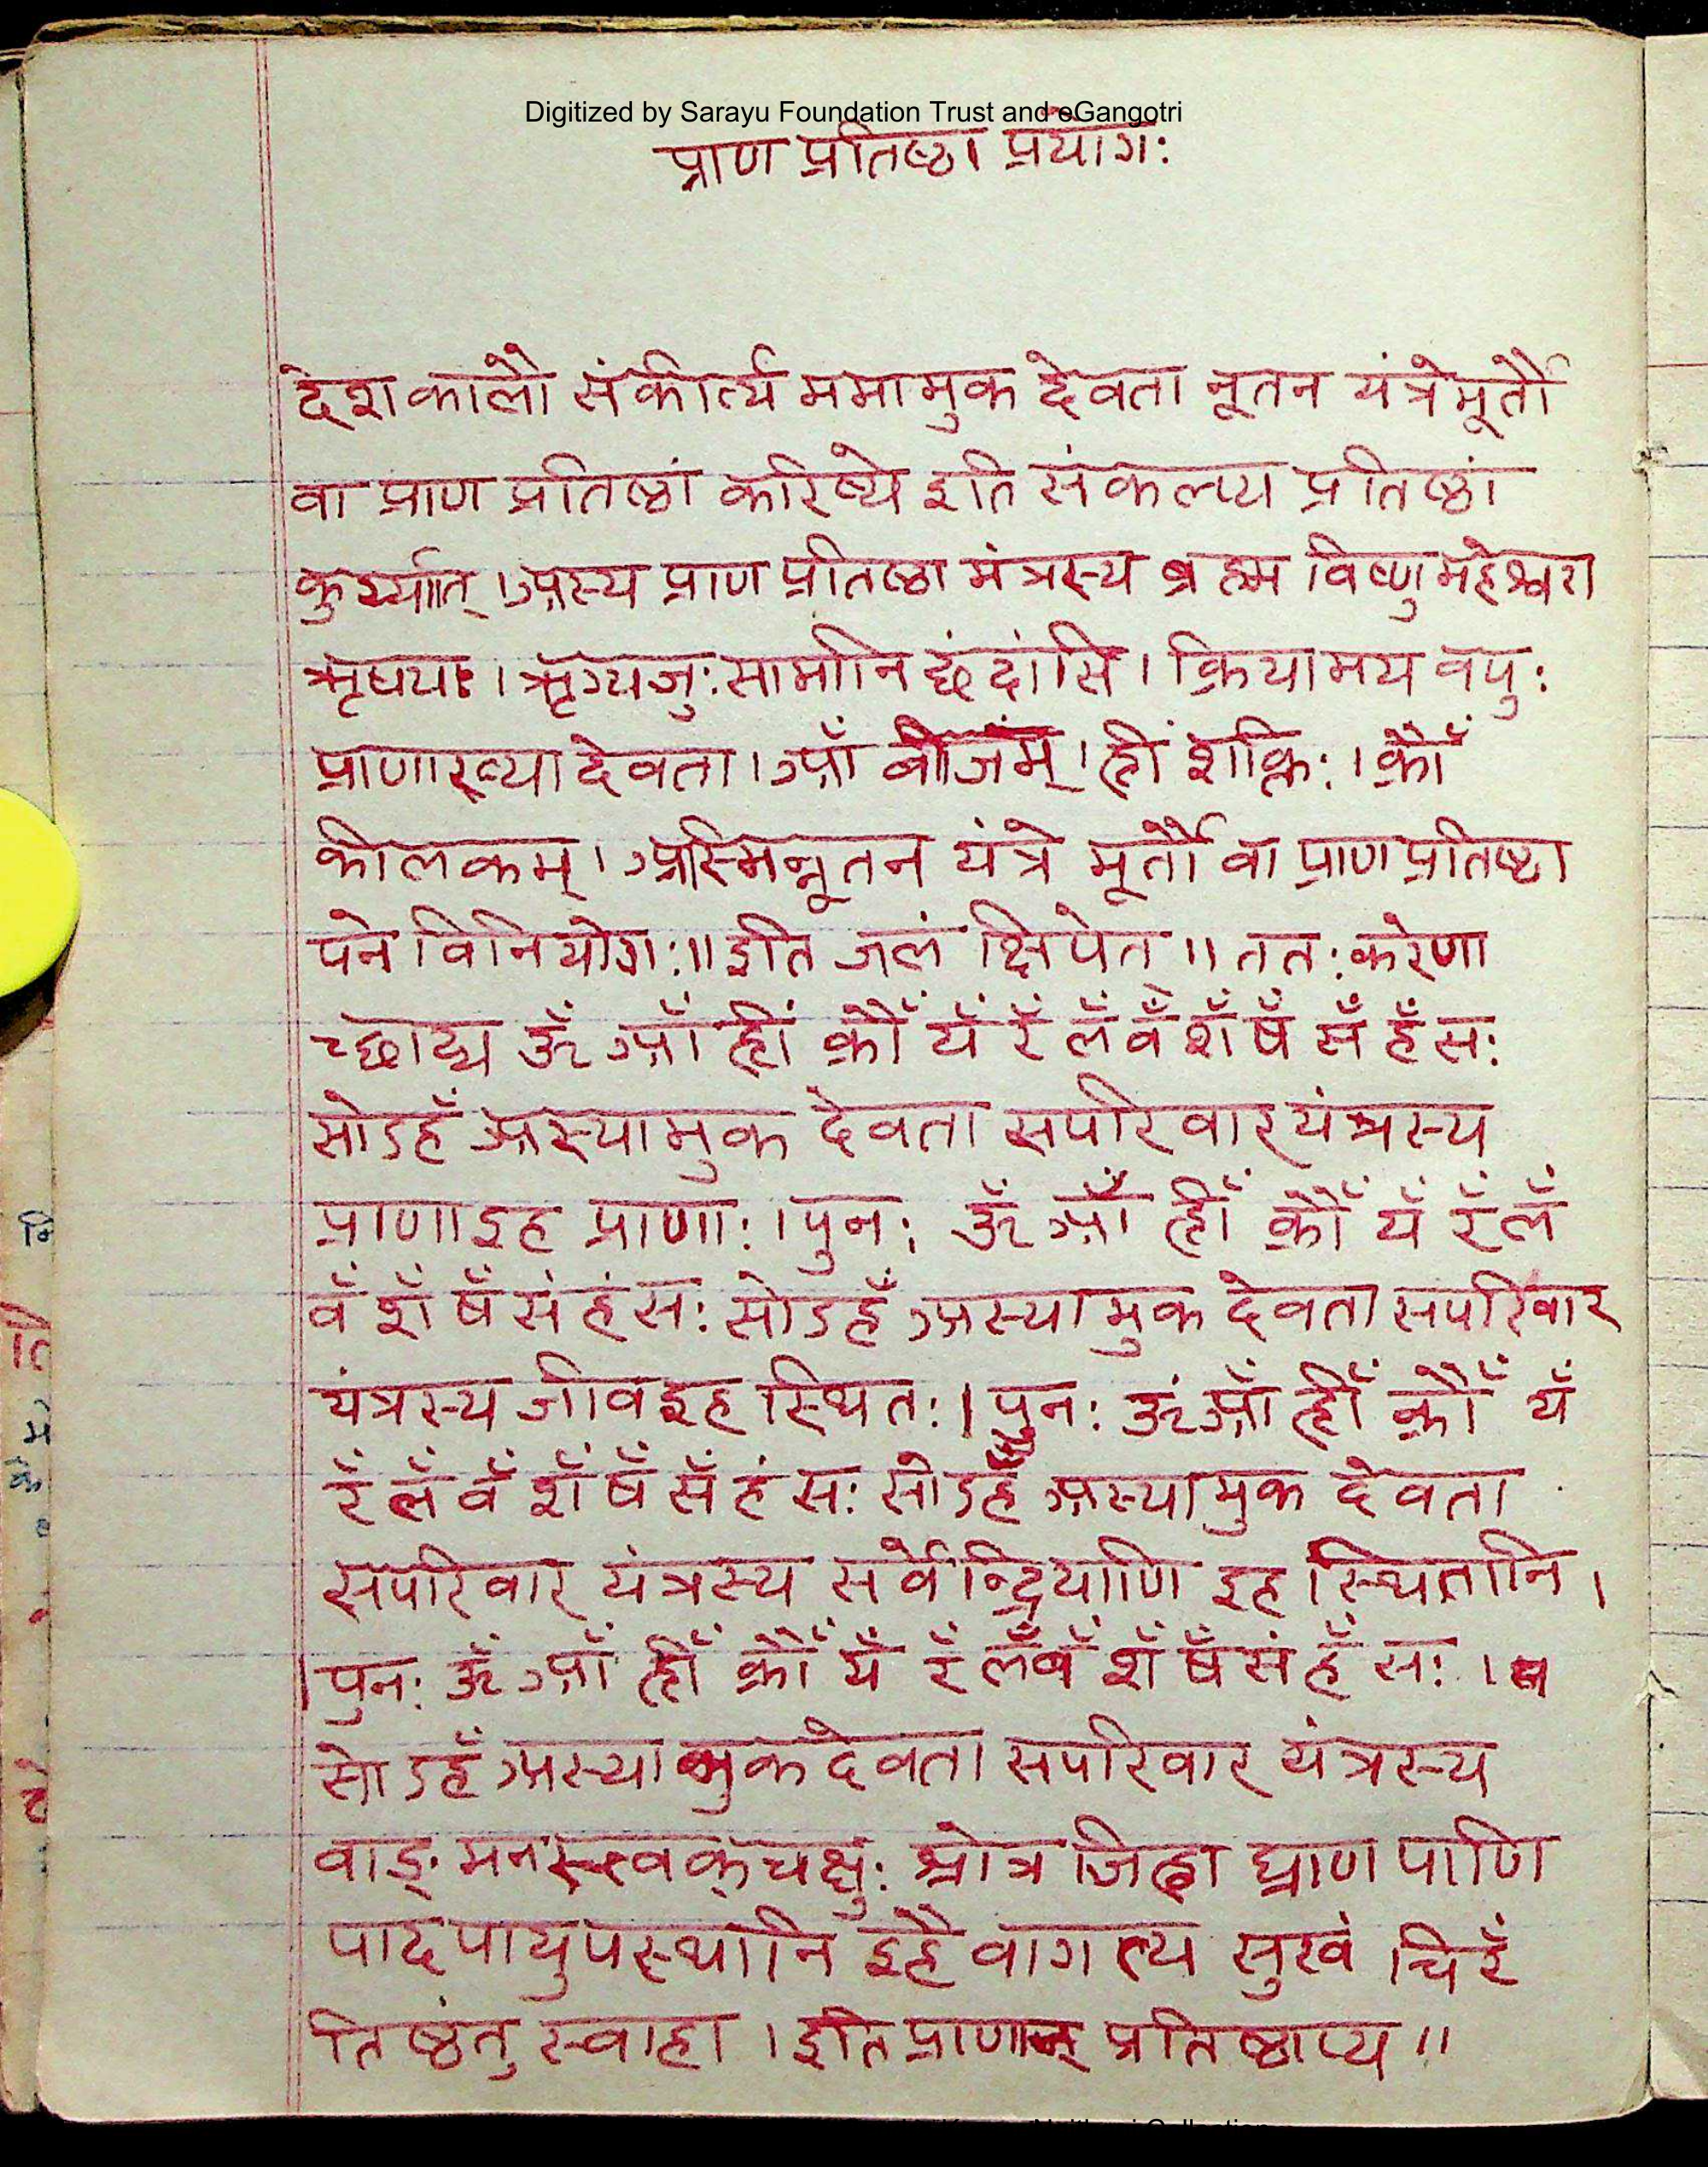 Digitized by Sarayu Foundation Trust and eGangotri
प्राण प्रतिष्ठा प्रयोगः
देश कालौ संकीर्त्य ममामुक देवता नूतन यंत्रे मूर्तौ
वा प्राण प्रतिष्ठां करिष्ये इति संकल्प्य प्रतिष्ठां
कुर्य्यात् । अस्य प्राण प्रतिष्ठा मंत्रस्य ब्रह्म विष्णु महेश्वरा
ऋषयः । ऋग्यजुः सामानि छंदांसि । क्रियामय वपुः
प्राणाख्या देवता । आँ बीजम् । ह्रीं शक्तिः । क्रौँ
कीलकम् । अस्मिन्नूतन यंत्रे मूर्तौ वा प्राण प्रतिष्ठा
पने विनियोगः ॥ इति जलं क्षिपेत् ॥ ततः करेणा
च्छाद्य ॐ आँ ह्रीं क्रौँ यँ रँ लँ वँ शँ षँ सँ हँ सः
सोऽहँ अस्यामुक देवता सपरिवार यंत्रस्य
प्राणा इह प्राणाः । पुनः ॐ आँ ह्रीँ क्रौँ यँ रँ लँ
वँ शँ षँ सं हं सः सोऽहँ अस्यामुक देवता सपरिवार
यंत्रस्य जीव इह स्थितः । पुनः ॐ आँ ह्रीँ क्रौँ यँ
रँ लँ वँ शँ षँ सँ हं सः सोऽहँ अस्यामुक देवता
सपरिवार यंत्रस्य सर्वेन्द्रियाणि इह स्थितानि ।
। पुनः ॐ आँ ह्रीँ क्रौँ यँ रँ लँ वँ शँ षँ सं हँ सः ।
सोऽहँ अस्यामुक देवता सपरिवार यंत्रस्य
वाङ् मनस्त्वक् चक्षुः श्रोत्र जिह्वा घ्राण पाणि
पाद पायुपस्थानि इहै वागत्य सुखं चिरँ
तिष्ठंतु स्वाहा । इति प्राणान् प्रतिष्ठाप्य ॥